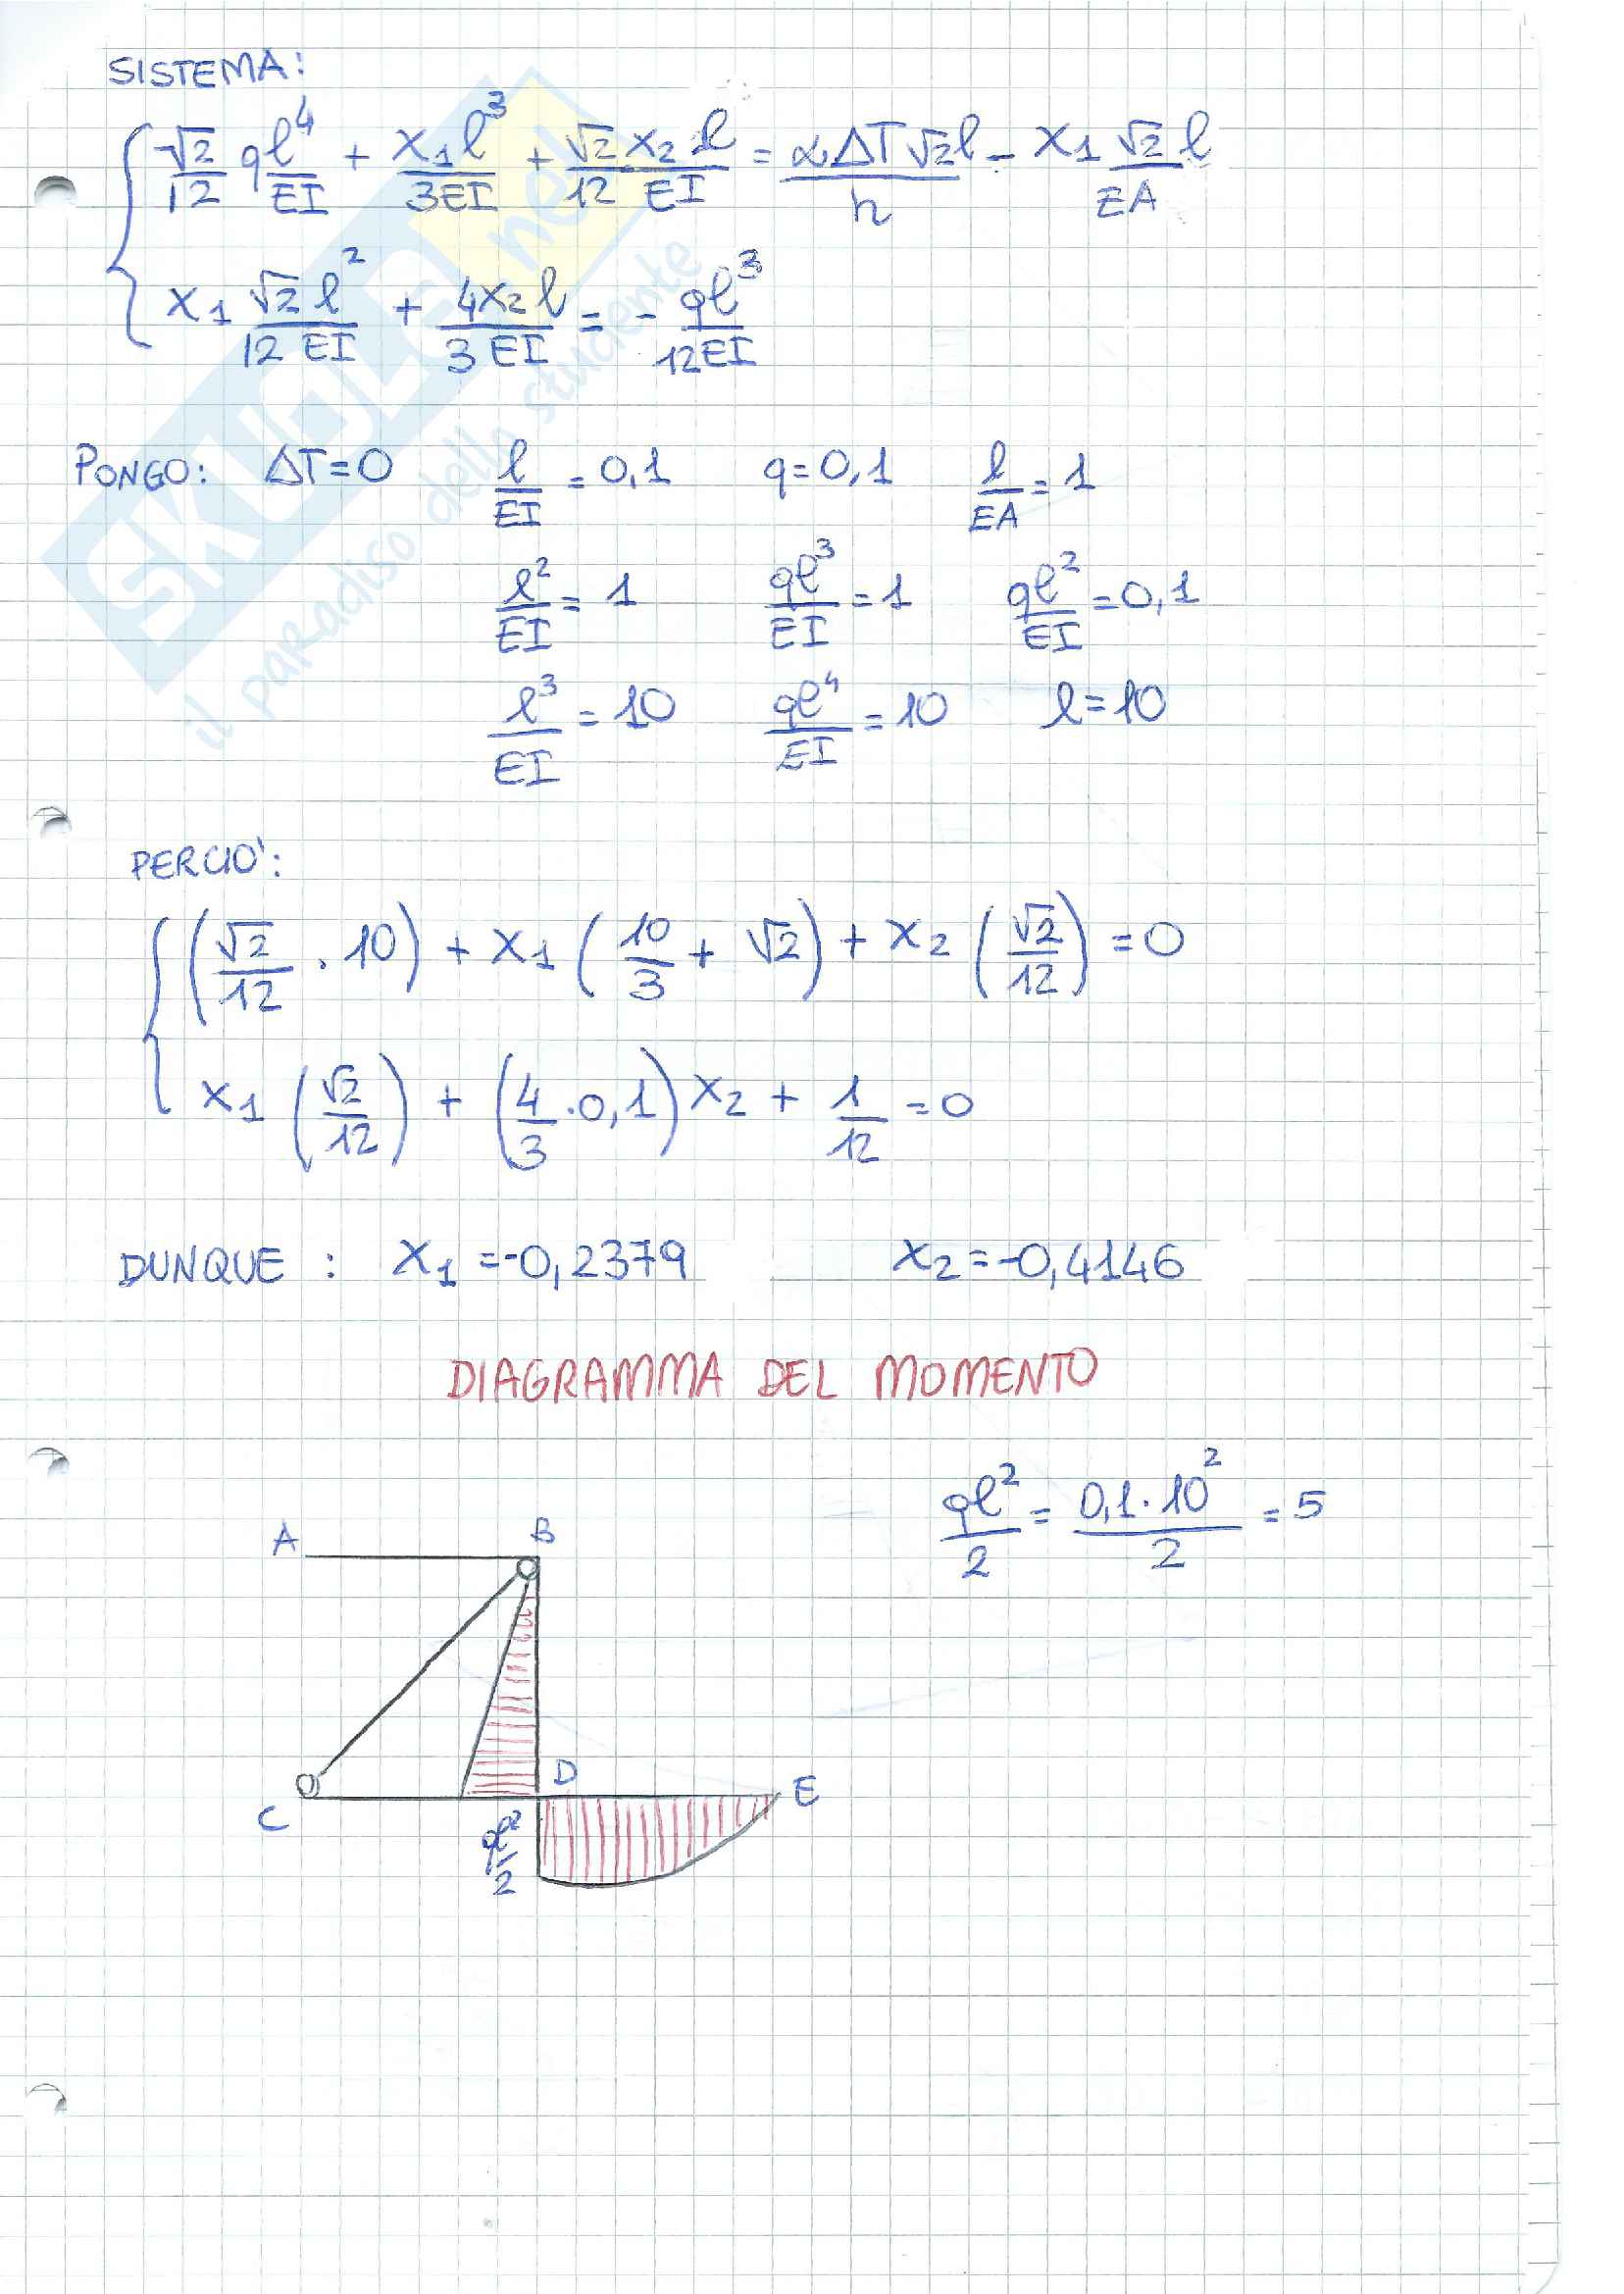 SISTEMA:
√2/12 ql⁴/EI + X₁l³/3EI + √2/12 X₂l/EI = αΔT√2l/h - X₁√2l/EA
X₁ √2l²/12EI + 4X₂l/3EI = - ql³/12EI
PONGO: ΔT=0 l/EI = 0,1 q=0,1 l/EA = 1
l²/EI = 1 ql³/EI = 1 ql²/EI = 0,1
l³/EI = 10 ql⁴/EI = 10 l=10
PERCIO':
(√2/12 . 10) + X₁ (10/3 + √2) + X₂ (√2/12) = 0
X₁ (√2/12) + (4/3 .0,1) X₂ + 1/12 = 0
DUNQUE : X₁ =-0,2379 X₂=-0,4146
DIAGRAMMA DEL MOMENTO
ql²/2 = 0,1. 10²/2 = 5
A B
D
C E
ql²/2
SKUOLA.net
il paradiso dello studente